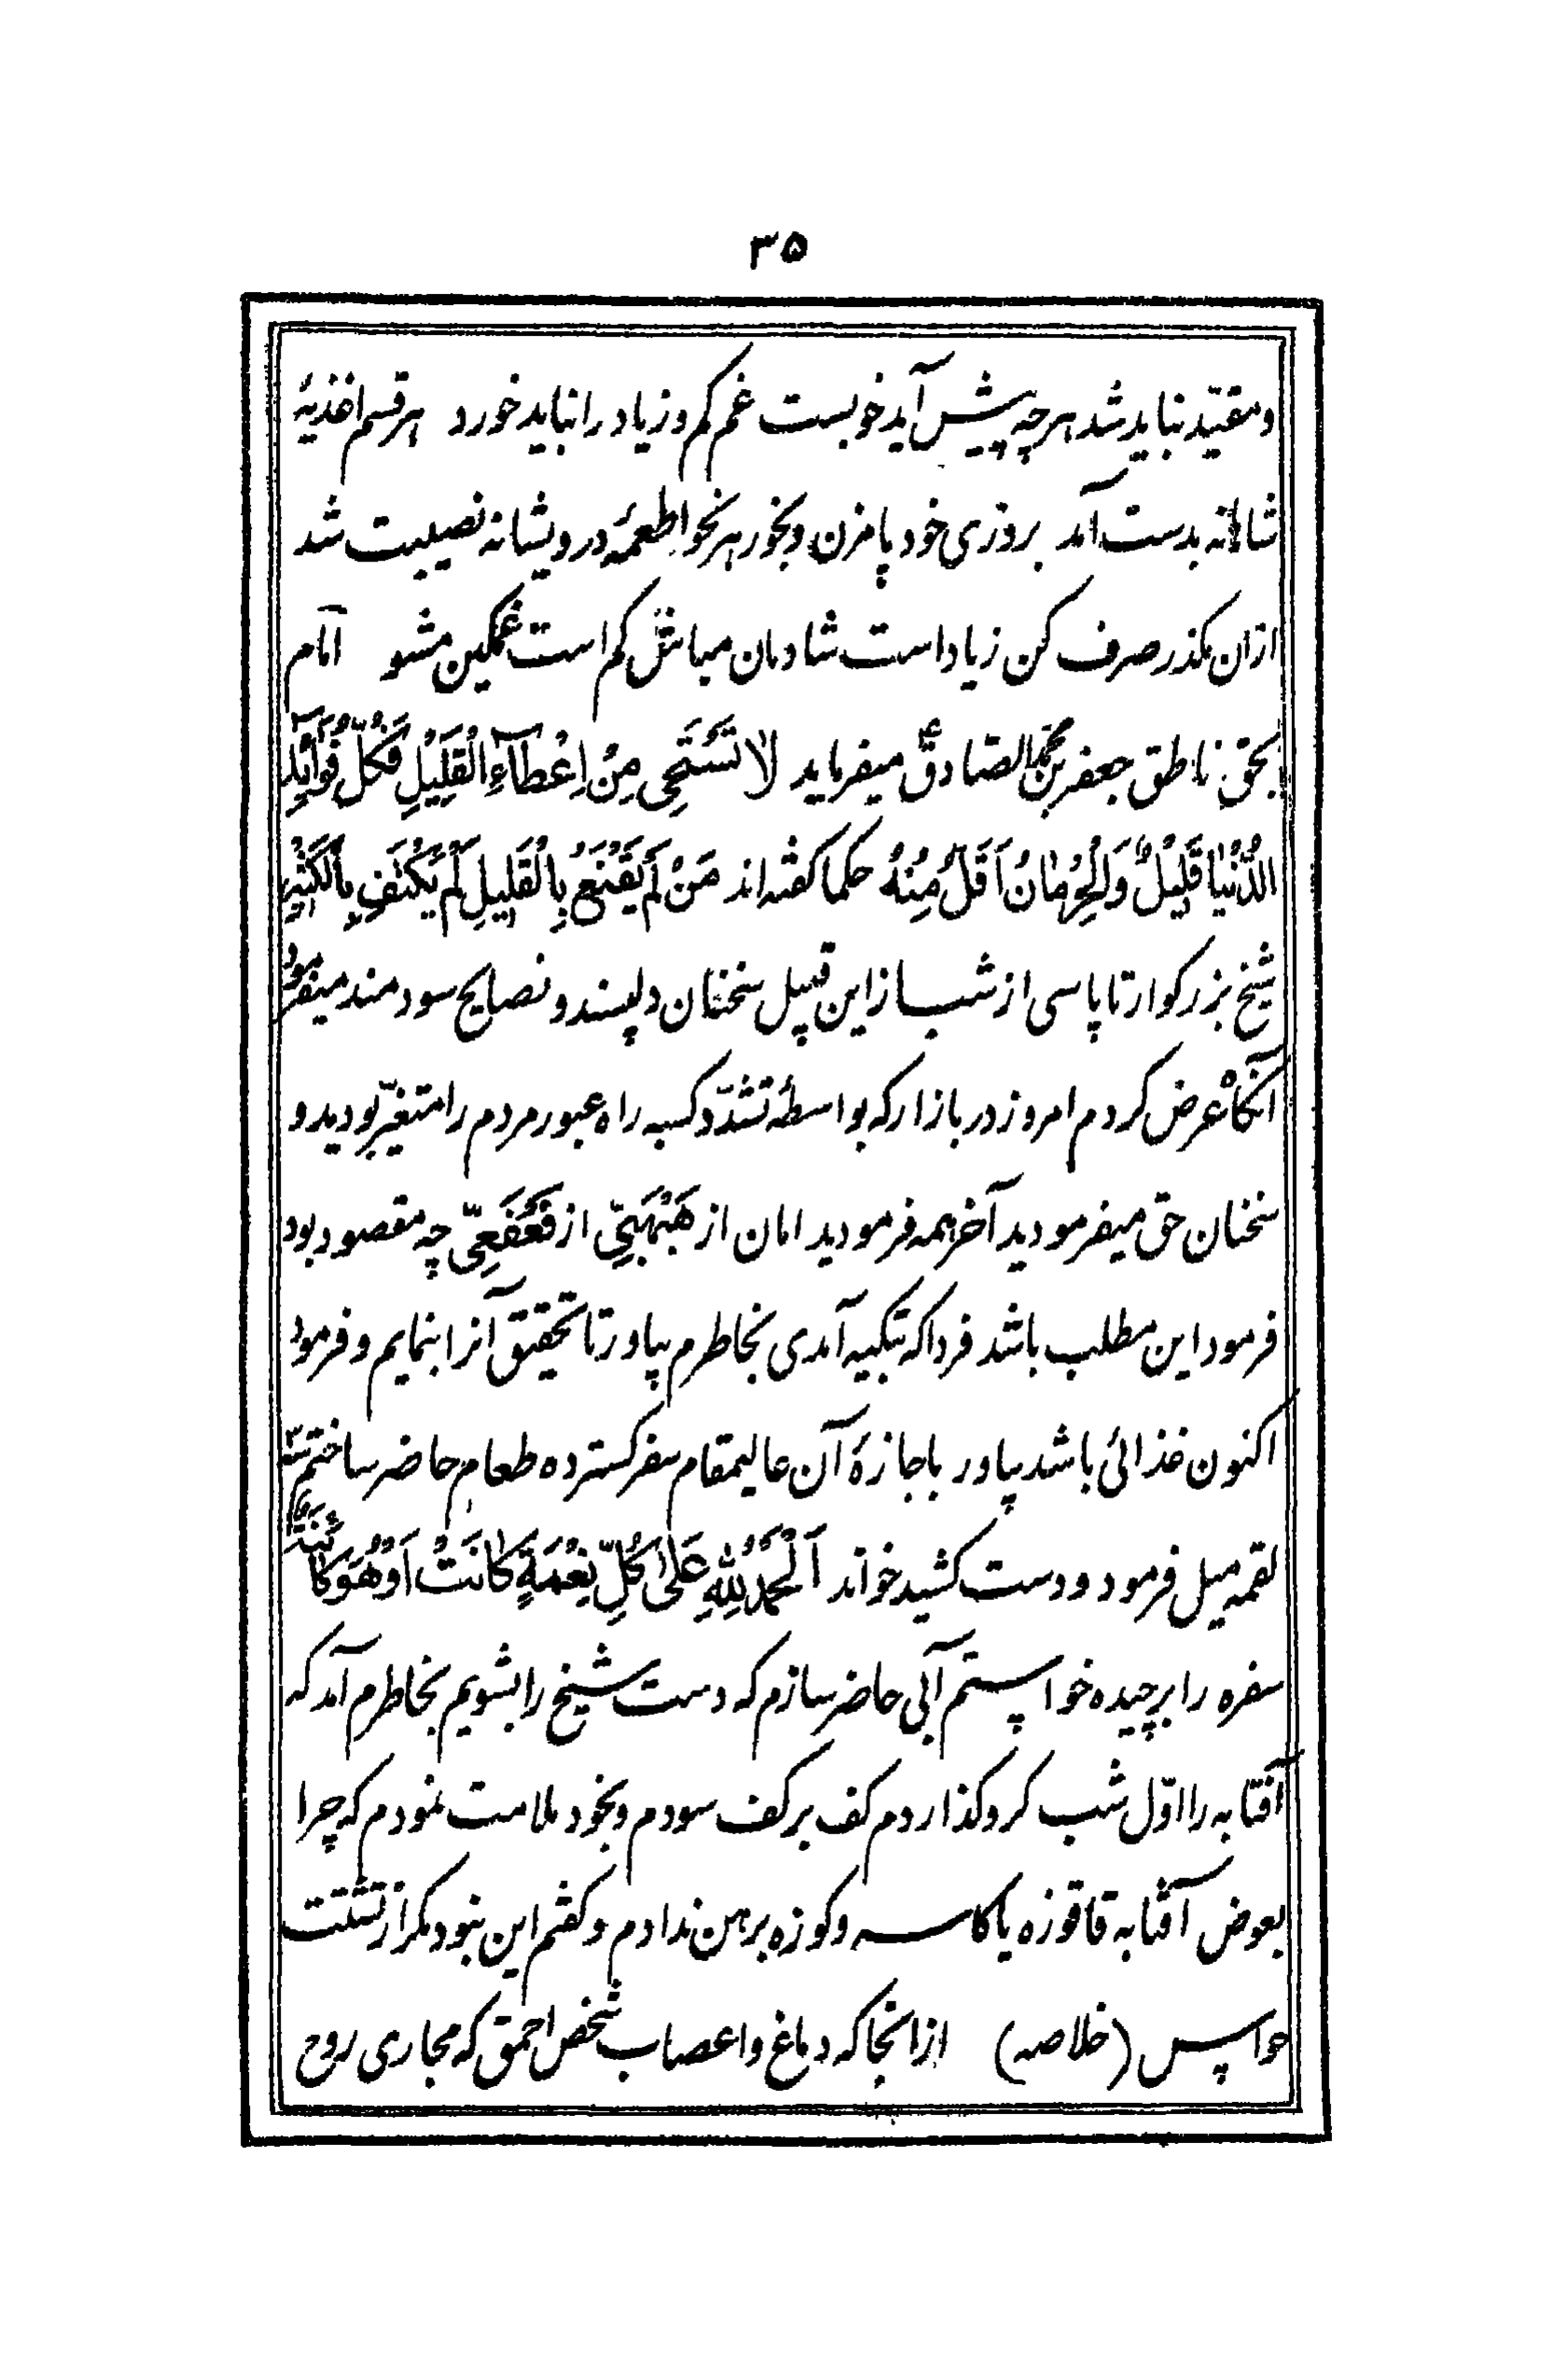 ۳۵
ومقیّد نباید شد هرچه پیش آید خوبست غم کم و زیاد را نباید خورد هر قسم اغذیهٔ
شاهانه بدست آمد بروزی خود پا مزن و بخور هر نحو اطعمهٔ درویشانه نصیبت شد
ازان مکذر صرف کن زیاد است شادمان مباش کم است غمکین مشو امام
بحق ناطق جعفر بن محمد الصادقؑ میفرماید لا تَسْتَحْیِ مِنْ اِعْطَآءِ الْقَلِیْلِ فَکُلُّ فَوَآئِدِ
الدُّنْیٰا قَلِیْلٌ وَالْحِرْمٰانُ اَقَلُّ مِنْهُ حکما کفته‌اند مَنْ لَمْ یَقْنَعْ بِالْقَلِیلِ لَمْ یَکْتَفِ بِالْکَثیرِ
شیخ بزرکوار تا پاسی از شب ازین قبیل سخنان دلپسند و نصایح سودمند میفرمود
آنکاه عرض کردم امروز در بازار که بواسطهٔ تشدّد کسبه راه عبور مردم را متغیّر بودید و
سخنان حق میفرمودید آخر همه فرمودید امان از هَبْهَبّی از فَعْفَعیّ چه مقصود بود
فرمود این مطلب باشد فردا که بتکیه آمدی بخاطرم بیاور تا تحقیق آنرا بنمایم و فرمود
اکنون غذائی باشد بیاور باجازهٔ آن عالیمقام سفر کسترده طعام حاضر ساختم سه
لقمه میل فرمود و دست کشید خواند اَلْحَمْدُ لِلّٰهِ عَلیٰ کُلِّ نِعْمَةٍ کٰانَتْ اَوْ هُوَ کٰائِنَةٌ
سفره را برچیده خواستم آبی حاضر سازم که دست شیخ را بشویم بخاطرم آمد که
آفتابه را اوّل شب کرو کذاردم کف بر کف سودم و بخود ملامت نمودم که چرا
بعوض آفتابه قاقوزه یا کاسه و کوزه برهن ندادم و کفتم این نبود مکر از تشتت
حواس (خلاصه) ازانجا که دماغ و اعصاب شخص احمق که مجاری روح